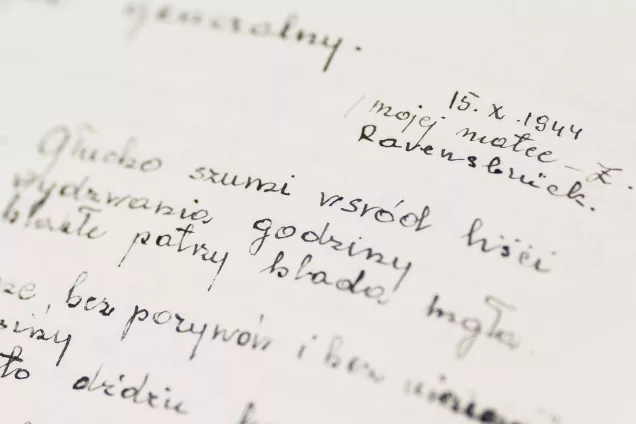 generalny.
15. X. 1944
mojej matce - Z.
Ravensbrück.
Głucho szumi wsród liści
wydzwania godziny
patrzy blada mgła
bez porywów i bez
to dździu